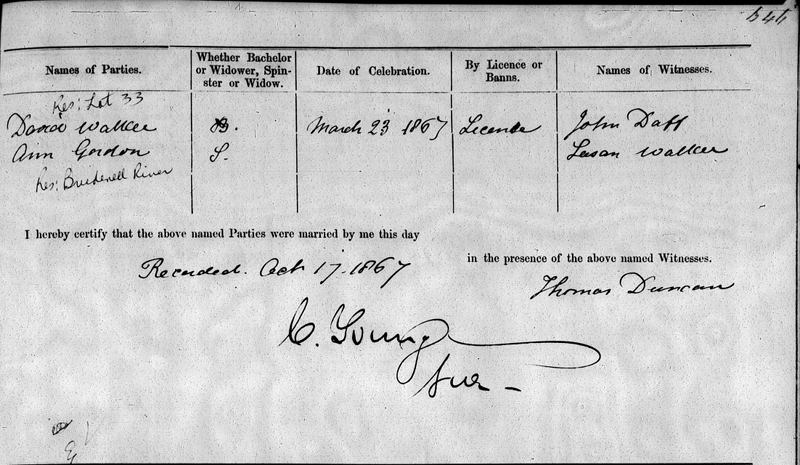 546
Names of Parties.
Whether Bachelor or Widower, Spin-ster or Widow.
Date of Celebration.
By Licence or Banns.
Names of Witnesses.
Res: Lot 33
David Walker
B.
March 23 1867
Licence
John Daff
Ann Gordon
S.
Susan Walker
Res: Brudenell River
I hereby certify that the above named Parties were married by me this day
in the presence of the above named Witnesses.
Recorded. Oct 17. 1867
Thomas Duncan
C. Young